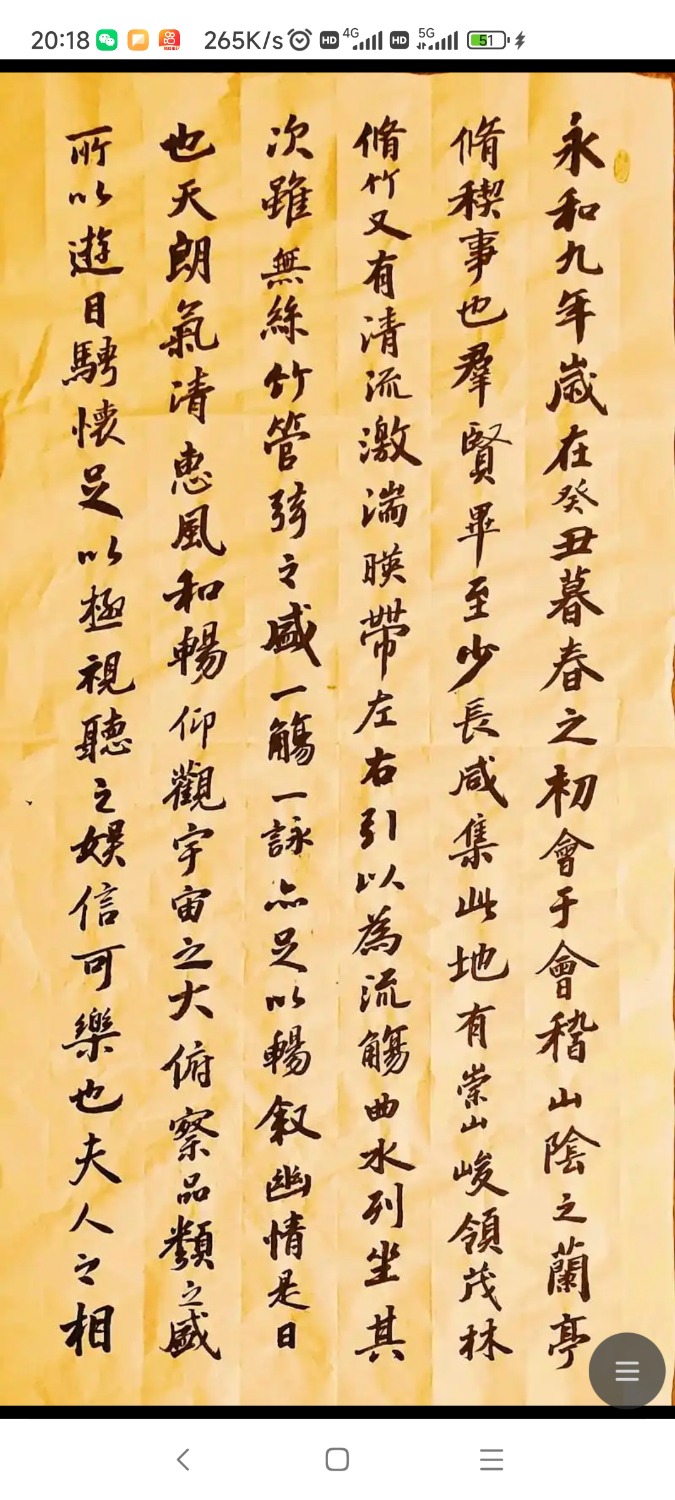 20:18 265K/s HD 4G HD 5G 51
永和九年歲在癸丑暮春之初會于會稽山陰之蘭亭
脩稧事也羣賢畢至少長咸集此地有崇山峻領茂林
脩竹又有清流激湍暎帶左右引以為流觴曲水列坐其
次雖無絲竹管弦之盛一觴一詠亦足以暢叙幽情是日
也天朗氣清惠風和暢仰觀宇宙之大俯察品類之盛
所以遊目騁懷足以極視聽之娛信可樂也夫人之相